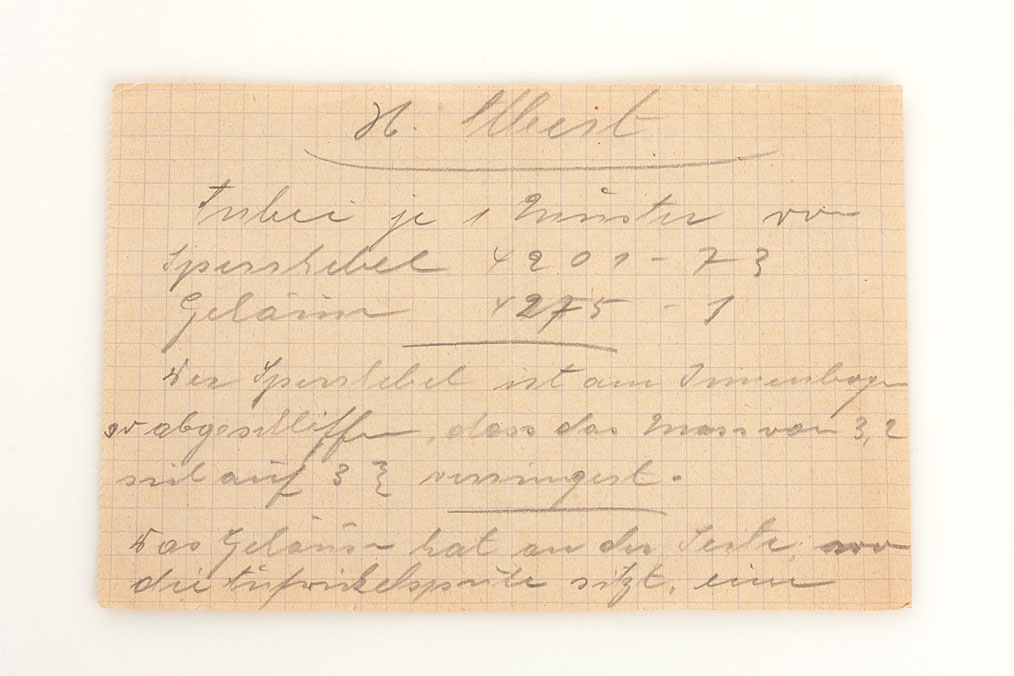 H. Albert
Anbei je 1 Muster von
Sperrhebel 4201-73
Gehäuse 4275-1
Der Sperrhebel ist am Innenbogen
so abgeschliffen, dass das Mass von 3,2
sich auf 3 verringert.
Das Gehäuse hat an der Seite, wo
die sitzt, eine